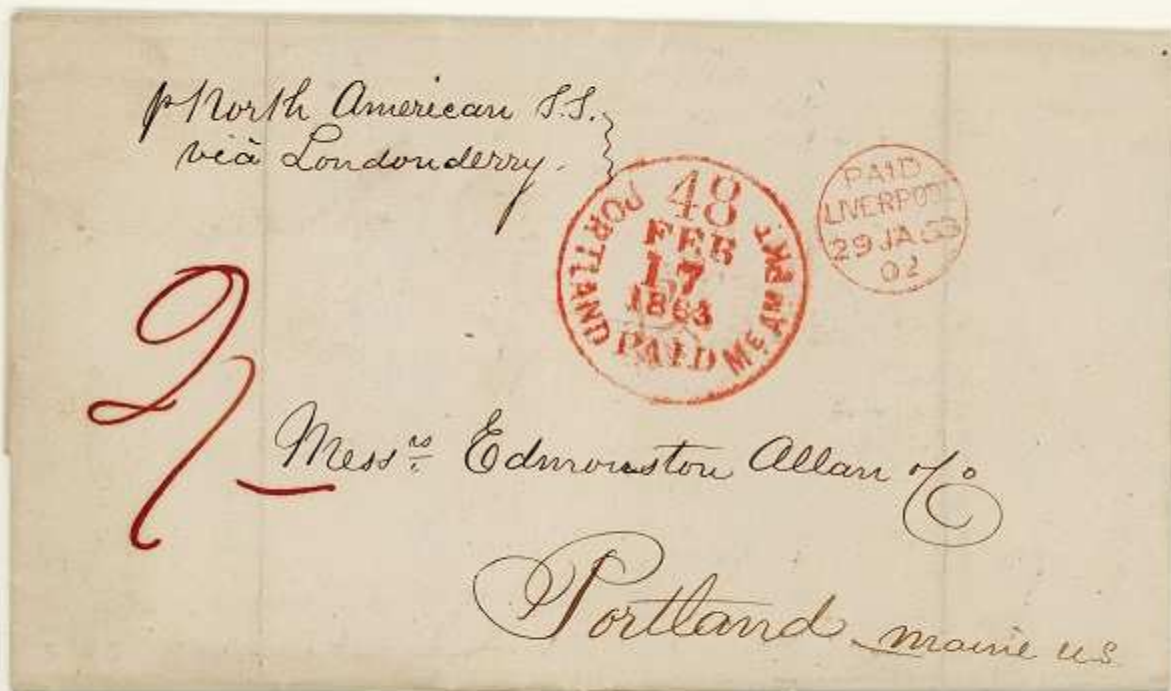 p North American S.S.
via Londonderry.
48
PORTLAND ME AM PKT.
FEB
17
1863
PAID
PAID
LIVERPOOL
29 JA 63
2/
Messrs Edmonston Allan & Co
Portland Maine US